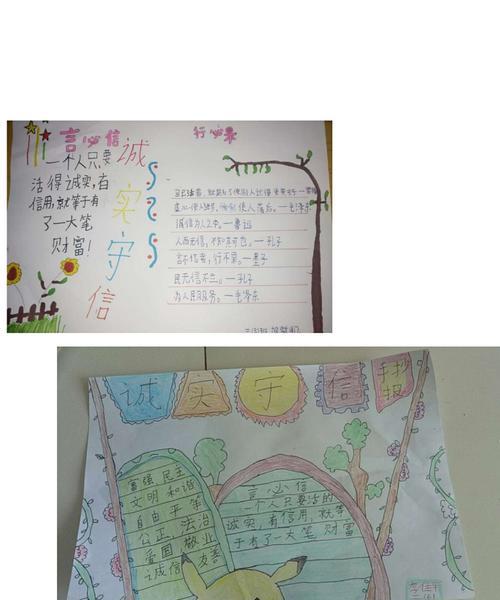 言必信
行必果
一个人只要
活得诚实,有
信用,就等于有
了一大笔
财富!
诚
实
守
信
虚心使人进步,骄傲使人落后。一毛泽东
诚信为人之本。一鲁迅
人而无信,不知其可也。一孔子
言不信者,行不果。一墨子
民无信不立。一孔子
为人民服务。一毛泽东
诚实守信
手抄
报
富强 民主
文明 和谐
自由 平等
公正 法治
爱国 敬业
诚信 友善
言必信
一个人只要活的
诚实,有信用,就等
于有了一大笔 财富